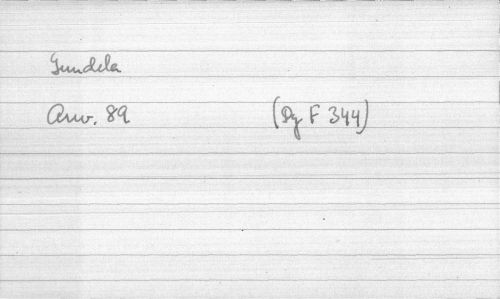 Gundela
Anv. 89 (Dg F 344)